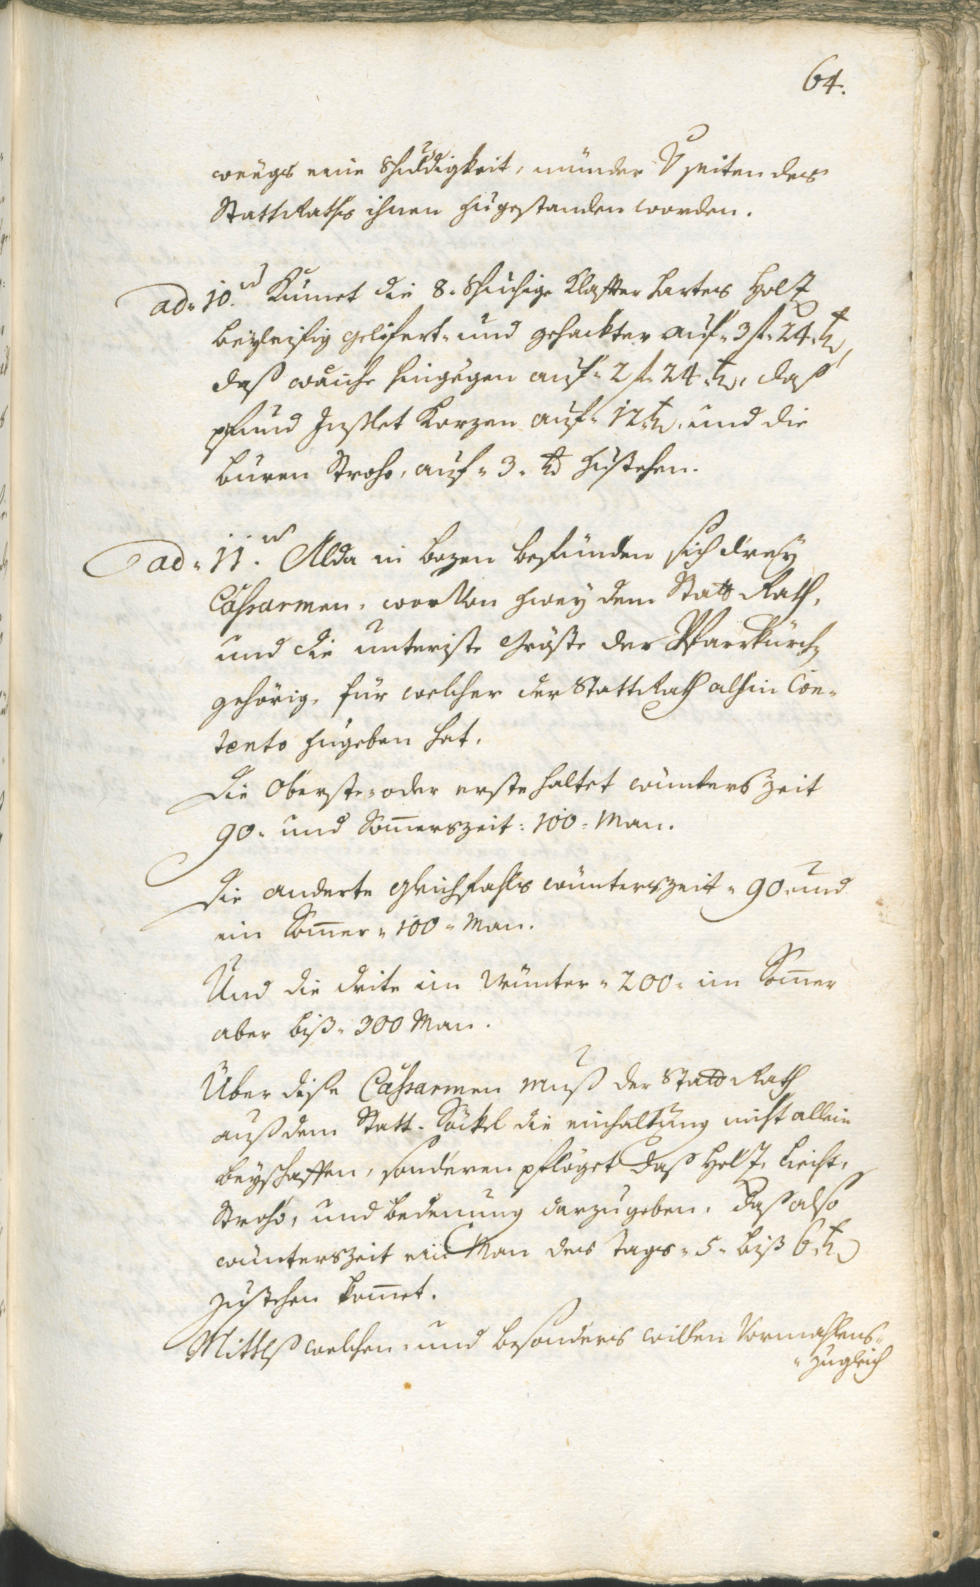 64.
weegs eine Schuldigkeit, münder seiten des
StattRaths ihnen zugestanden worden.
ad 10. Kumet die 8. Schuhige Klaffter hartes Holz
beyleifig gelifert- und gehackter auf 3 f 24 kr,
daß waiche hingegen auf 2 f 24 kr, daß
pfund Inslet Kerzen auf 12 kr, und die
buren Stroh, auf 3. kr zustehen.
ad 11. Alda in bozen befünden sich drey
Cahsarmen, worvon zwey dem Statt Rath,
und die unteriste gröste der Pfarrkürch
gehörig, für welcher der StattRath alhin Con-
tento zugeben hat.
Die Oberste- oder erste haltet wünterszeit
90. und Somerszeit: 100. Man.
Die anderte gleichfahls wünterszeit 90. und
im Somer 100 Man.
Und die drite im Wünter 200. im Somer
aber biß 300 Man.
Über dise Cahsarmen muß der Statt Rath
auß dem Statt-Söckel die einhaltung nicht allein
beyschaffen, sonderen pfleget daß Holz, Liecht,
Stroh, und bedenung darzugeben. Daß also
wünterszeit ein Man des Tags 5. biß 6 kr
zustehen komet.
Mitls welchen, und besonders willen Vormahlens
zugleich